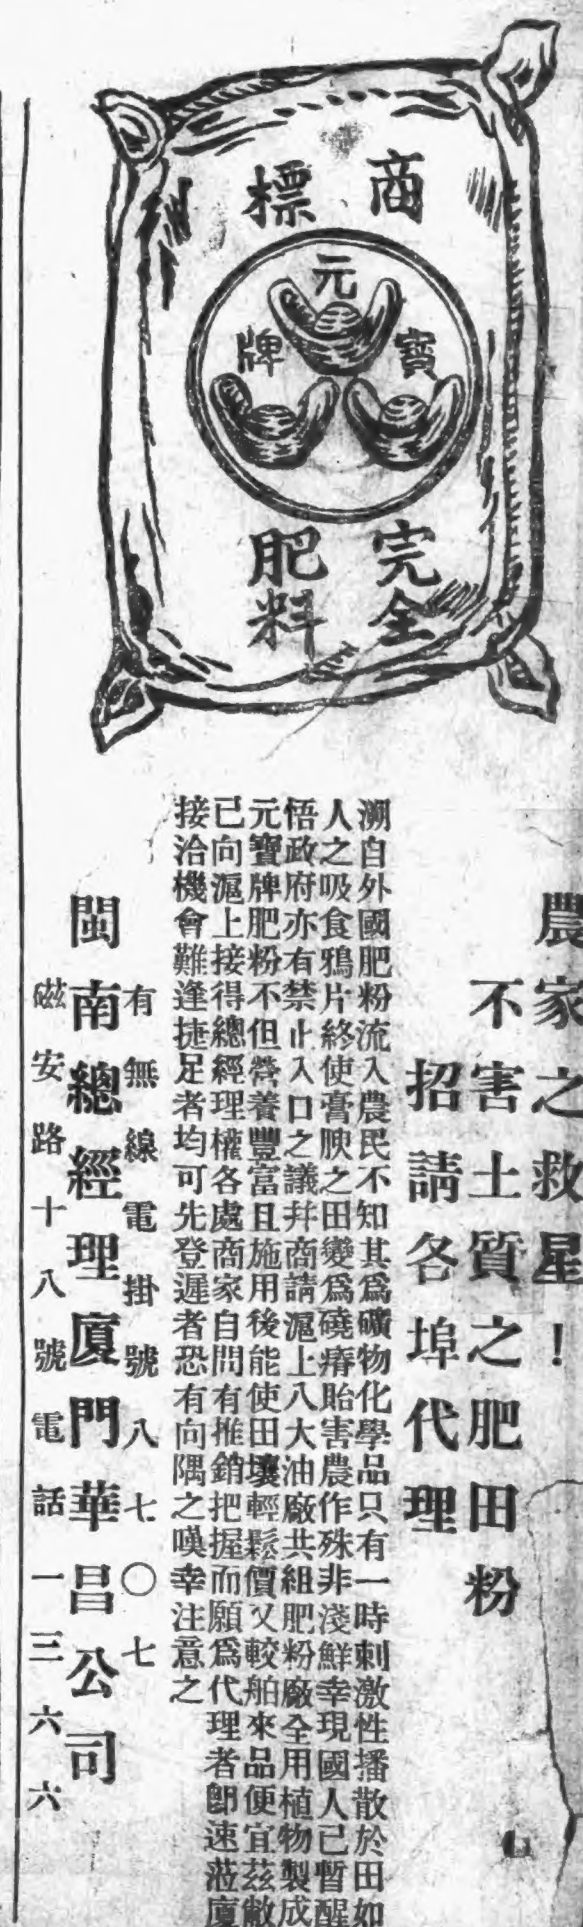 商標
元寶牌
完全
肥料
農家之救星！
不害土質之肥田粉
招請各埠代理
溯自外國肥粉流入農民不知其爲礦物化學品只有一時刺激性播散於田如
人之吸食鴉片終使膏腴之田變爲磽瘠貽害農作殊非淺鮮幸現國人已暫醒
悟政府亦有禁止入口之議幷商請滬上八大油廠共組肥粉廠全用植物製成
元寶牌肥粉不但營養豐富且施用後能使田壤輕鬆價又較舶來品便宜茲敝
已向滬上接得總經理權各處商家自問有推銷把握而願爲代理者卽速蒞廈
接洽機會難逢捷足者均可先登遲者恐有向隅之嘆幸注意之
有無線電掛號八七〇七
閩南總經理廈門華昌公司
磁安路十八號電話一三六六